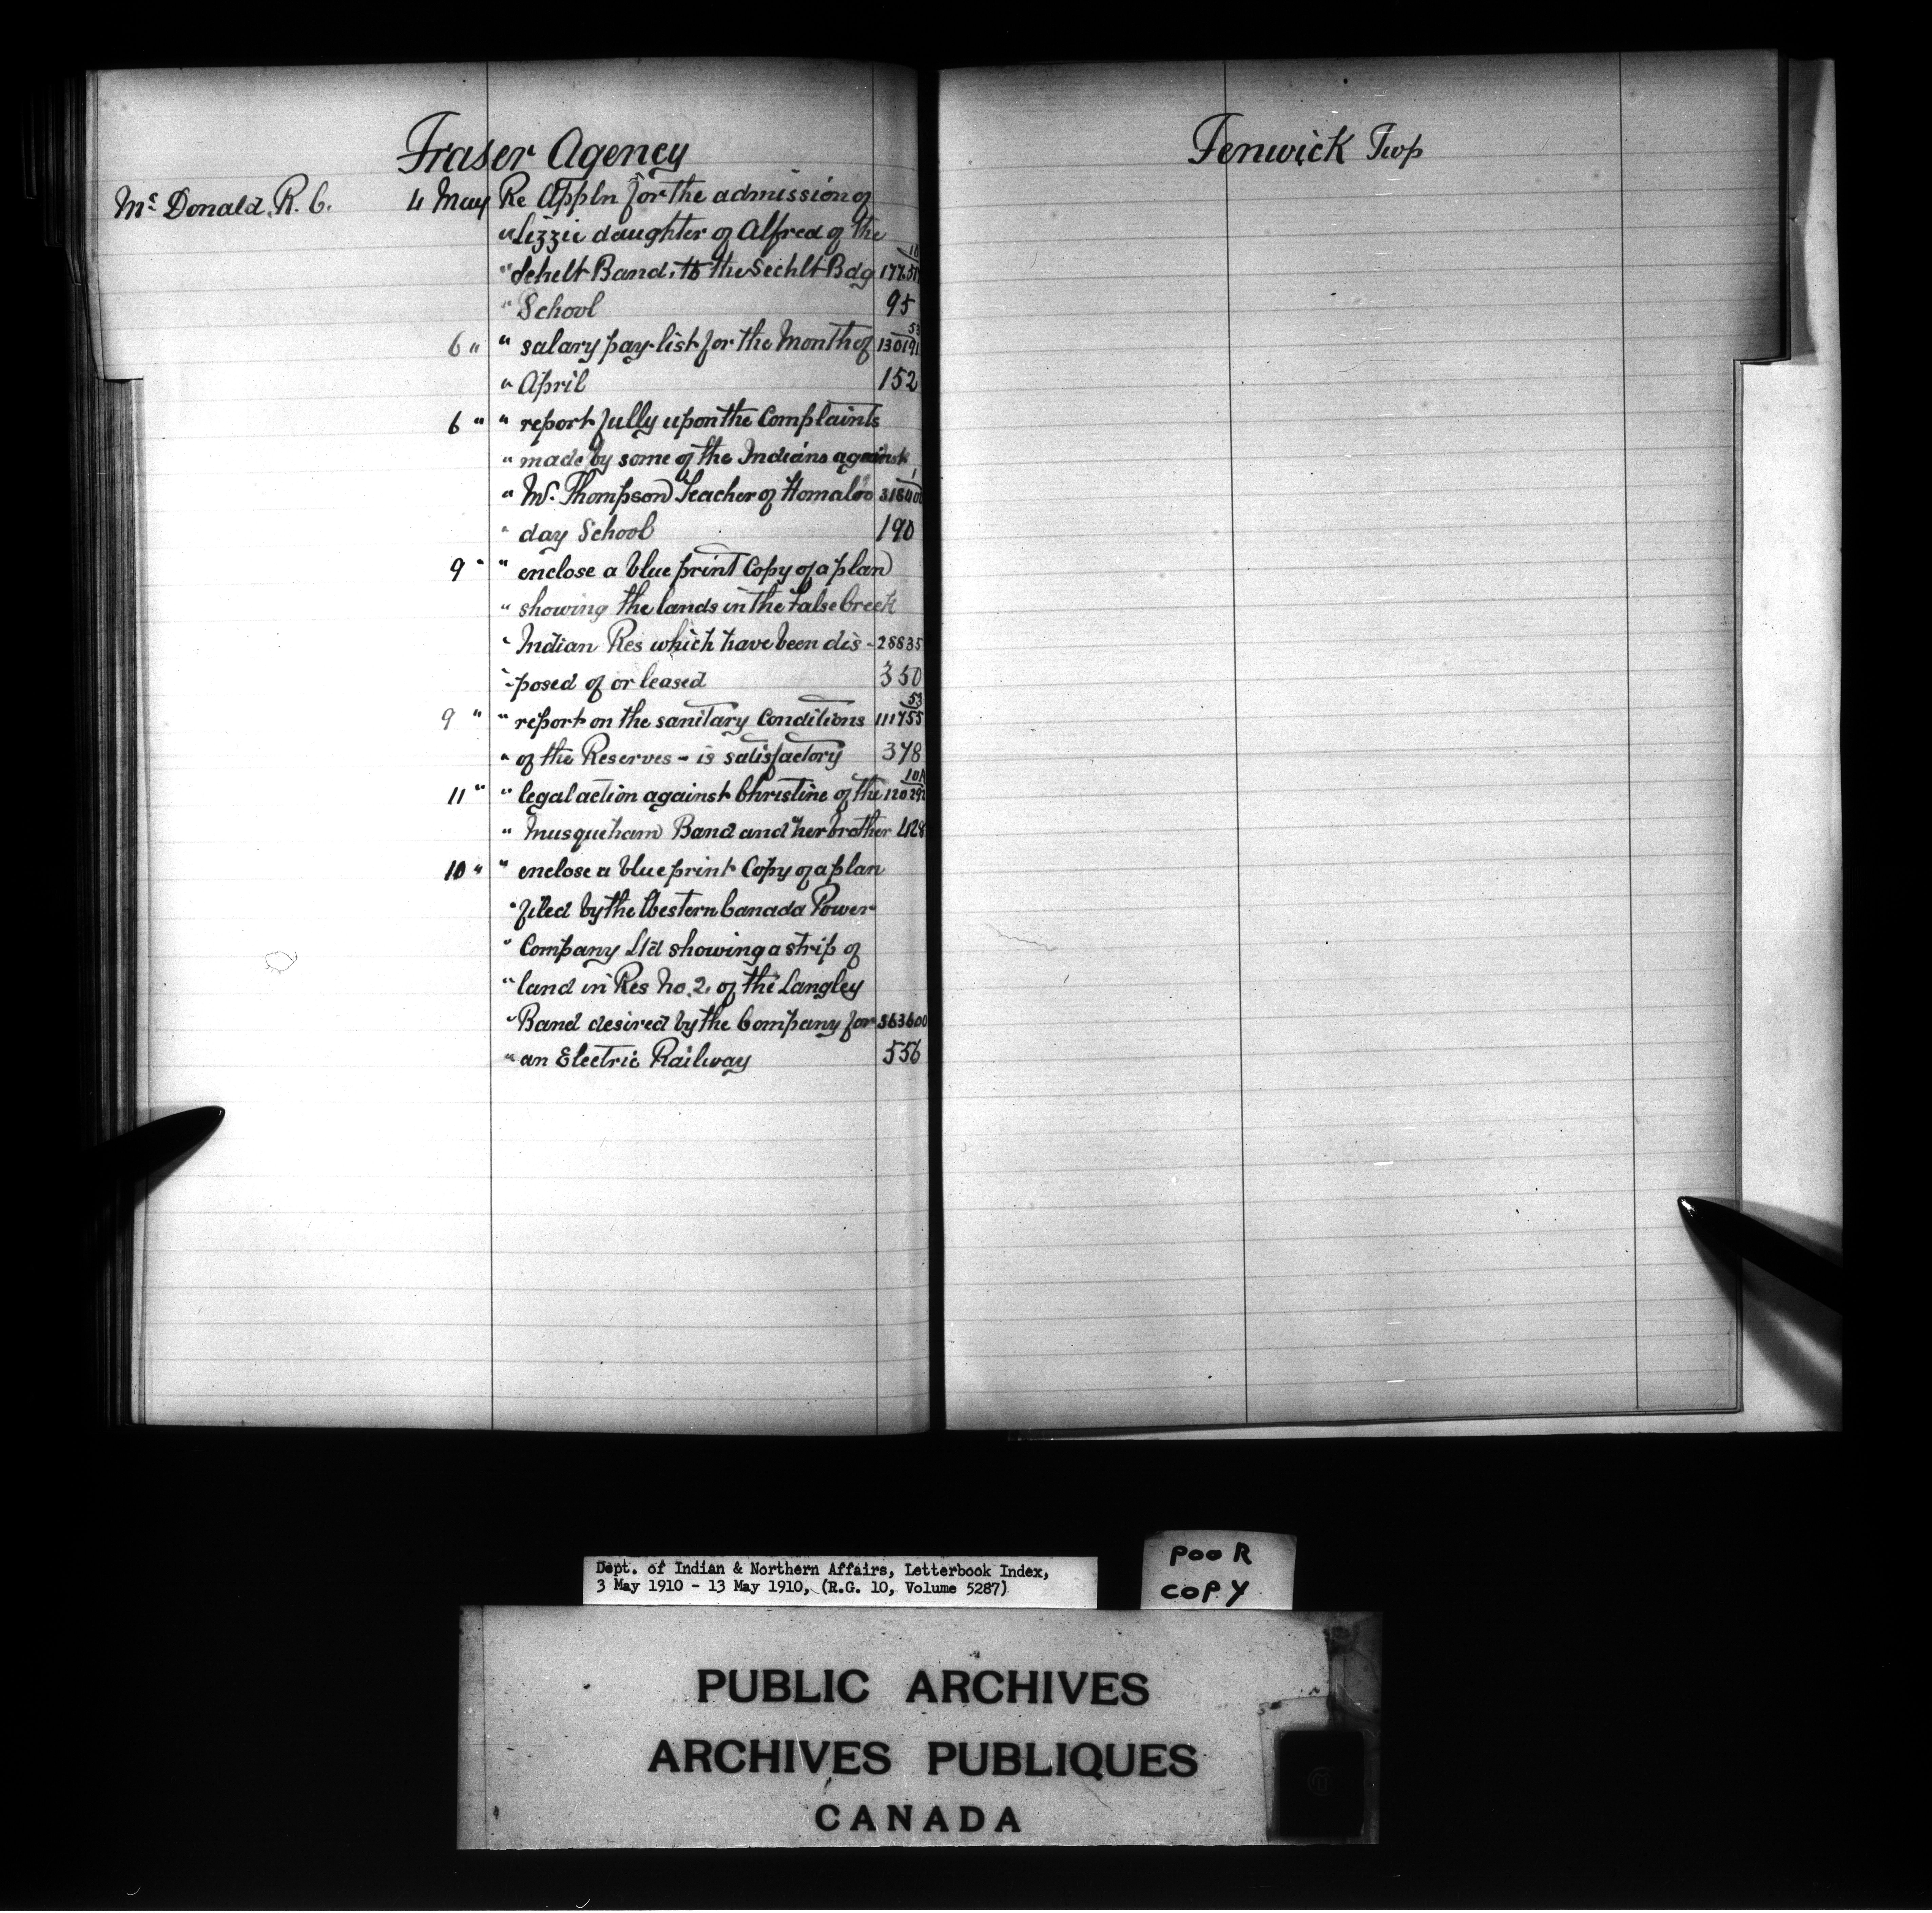 Fraser Agency
Mc Donald. R. C. 4 May Re Appln for the admission of
" Lizzie daughter of Alfred of the
" Sehelt Band, to the Sechlt Bdg
" School 95
6 " " salary pay-list for the Month of
" April 152
6 " " report fully upon the Complaints
" made by some of the Indians against
" Mr. Thompson Teacher of Homalco
" day School 190
9 " " enclose a blue print Copy of a plan
" showing the lands in the False Creek
" Indian Res which have been dis - 28835
"-posed of or leased 350
9 " " report on the sanitary Conditions
" of the Reserves - is satisfactory 378
11 " " legal action against Christine of the
" Musqueham Band and her brother 428
10 " " enclose a blue print Copy of a plan
" filed by the Western Canada Power
" Company Ltd showing a strip of
" land in Res No. 2. of the Langley
" Band desired by the Company for 363600
" an Electric Railway 556
Fenwick Twp
Dept. of Indian & Northern Affairs, Letterbook Index,
3 May 1910 - 13 May 1910, (R.G. 10, Volume 5287)
POOR
COPY
PUBLIC ARCHIVES
ARCHIVES PUBLIQUES
CANADA